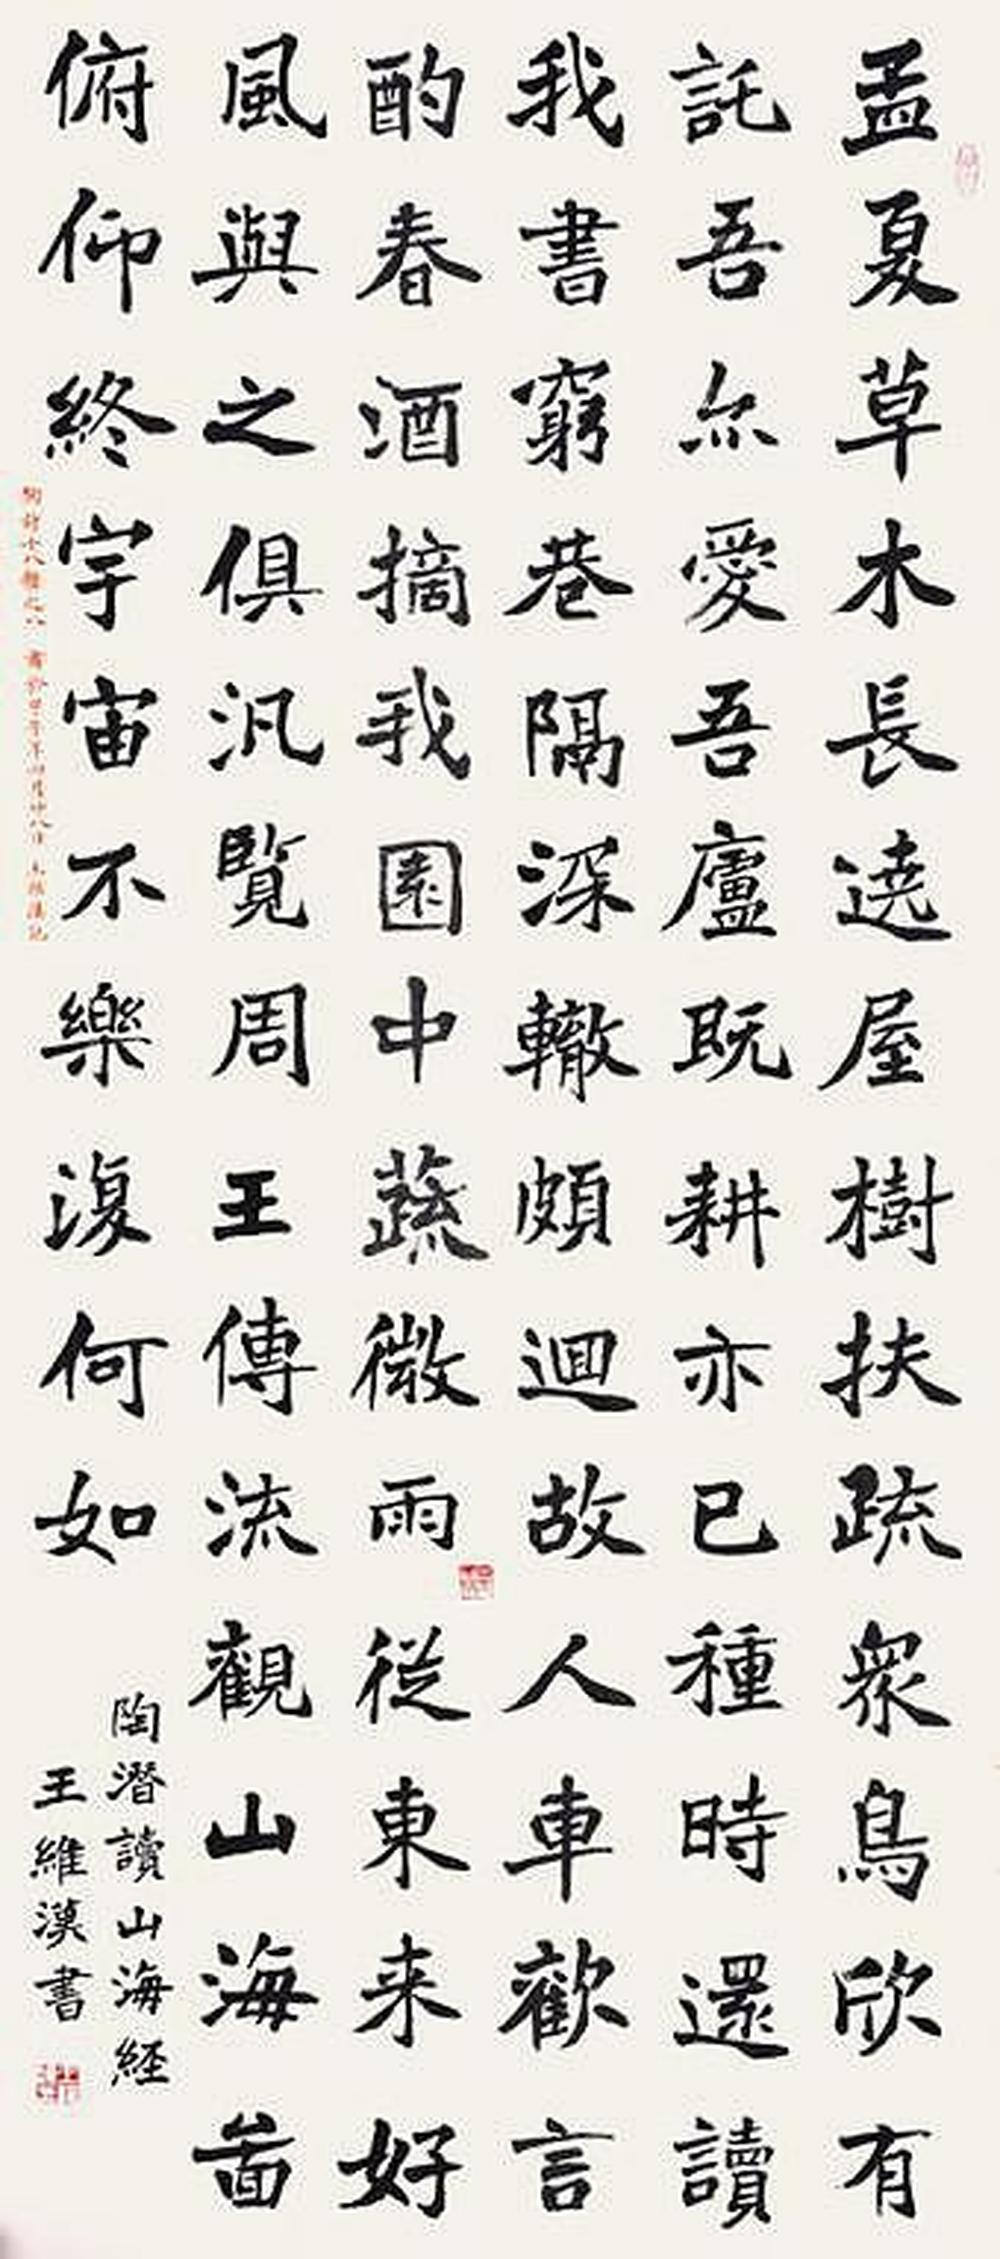 孟夏草木長遶屋樹扶疏衆鳥欣有
託吾亦愛吾廬既耕亦已種時還讀
我書窮巷隔深轍頗迴故人車歡言
酌春酒摘我園中蔬微雨從東来好
風與之俱汎覽周王傳流觀山海啚
俯仰終宇宙不樂復何如
陶潜讀山海経
王維漢書